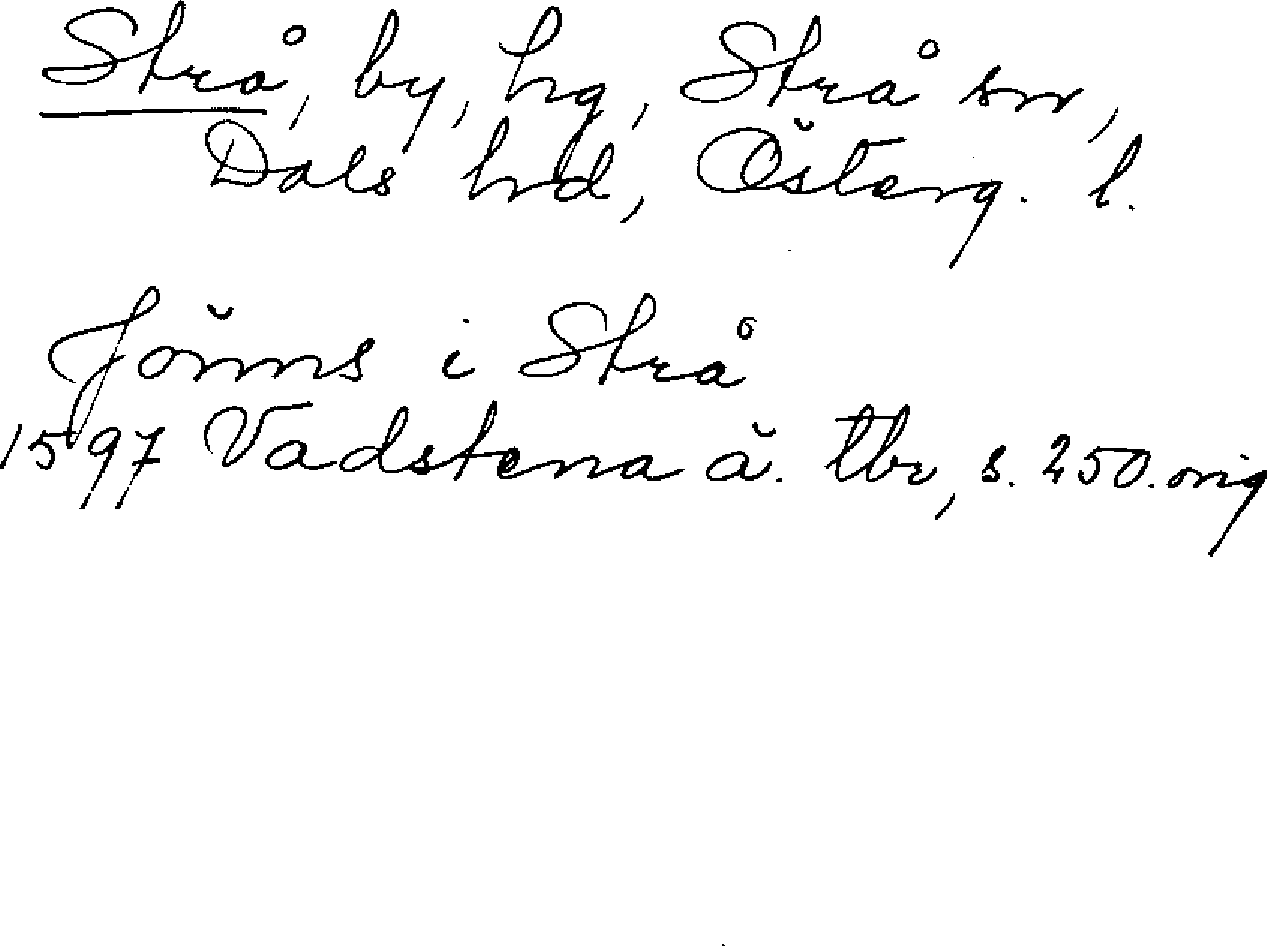 Strå, by, hg, Strå sn,
Dals hrd, Österg. l.
Jönns i Strå
1597 Vadstena ä. tbr, s. 250. orig